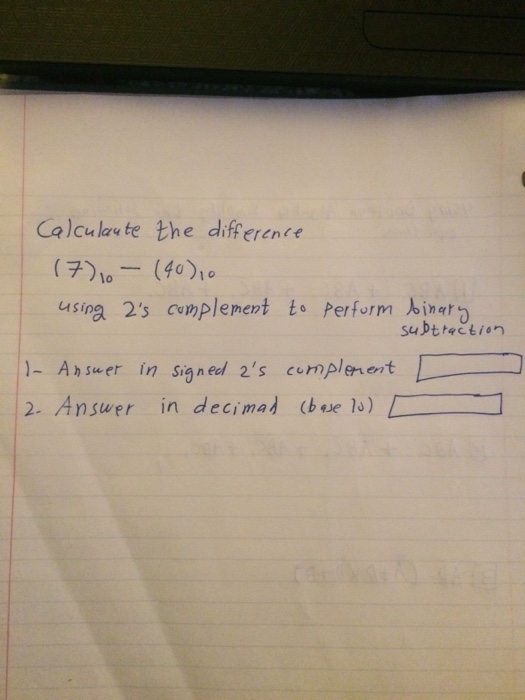 Calculaute the difference
(7)₁₀ — (40)₁₀
using 2's complement to perform binary
subtraction
1- Answer in signed 2's complement
2. Answer in decimal (base 10)